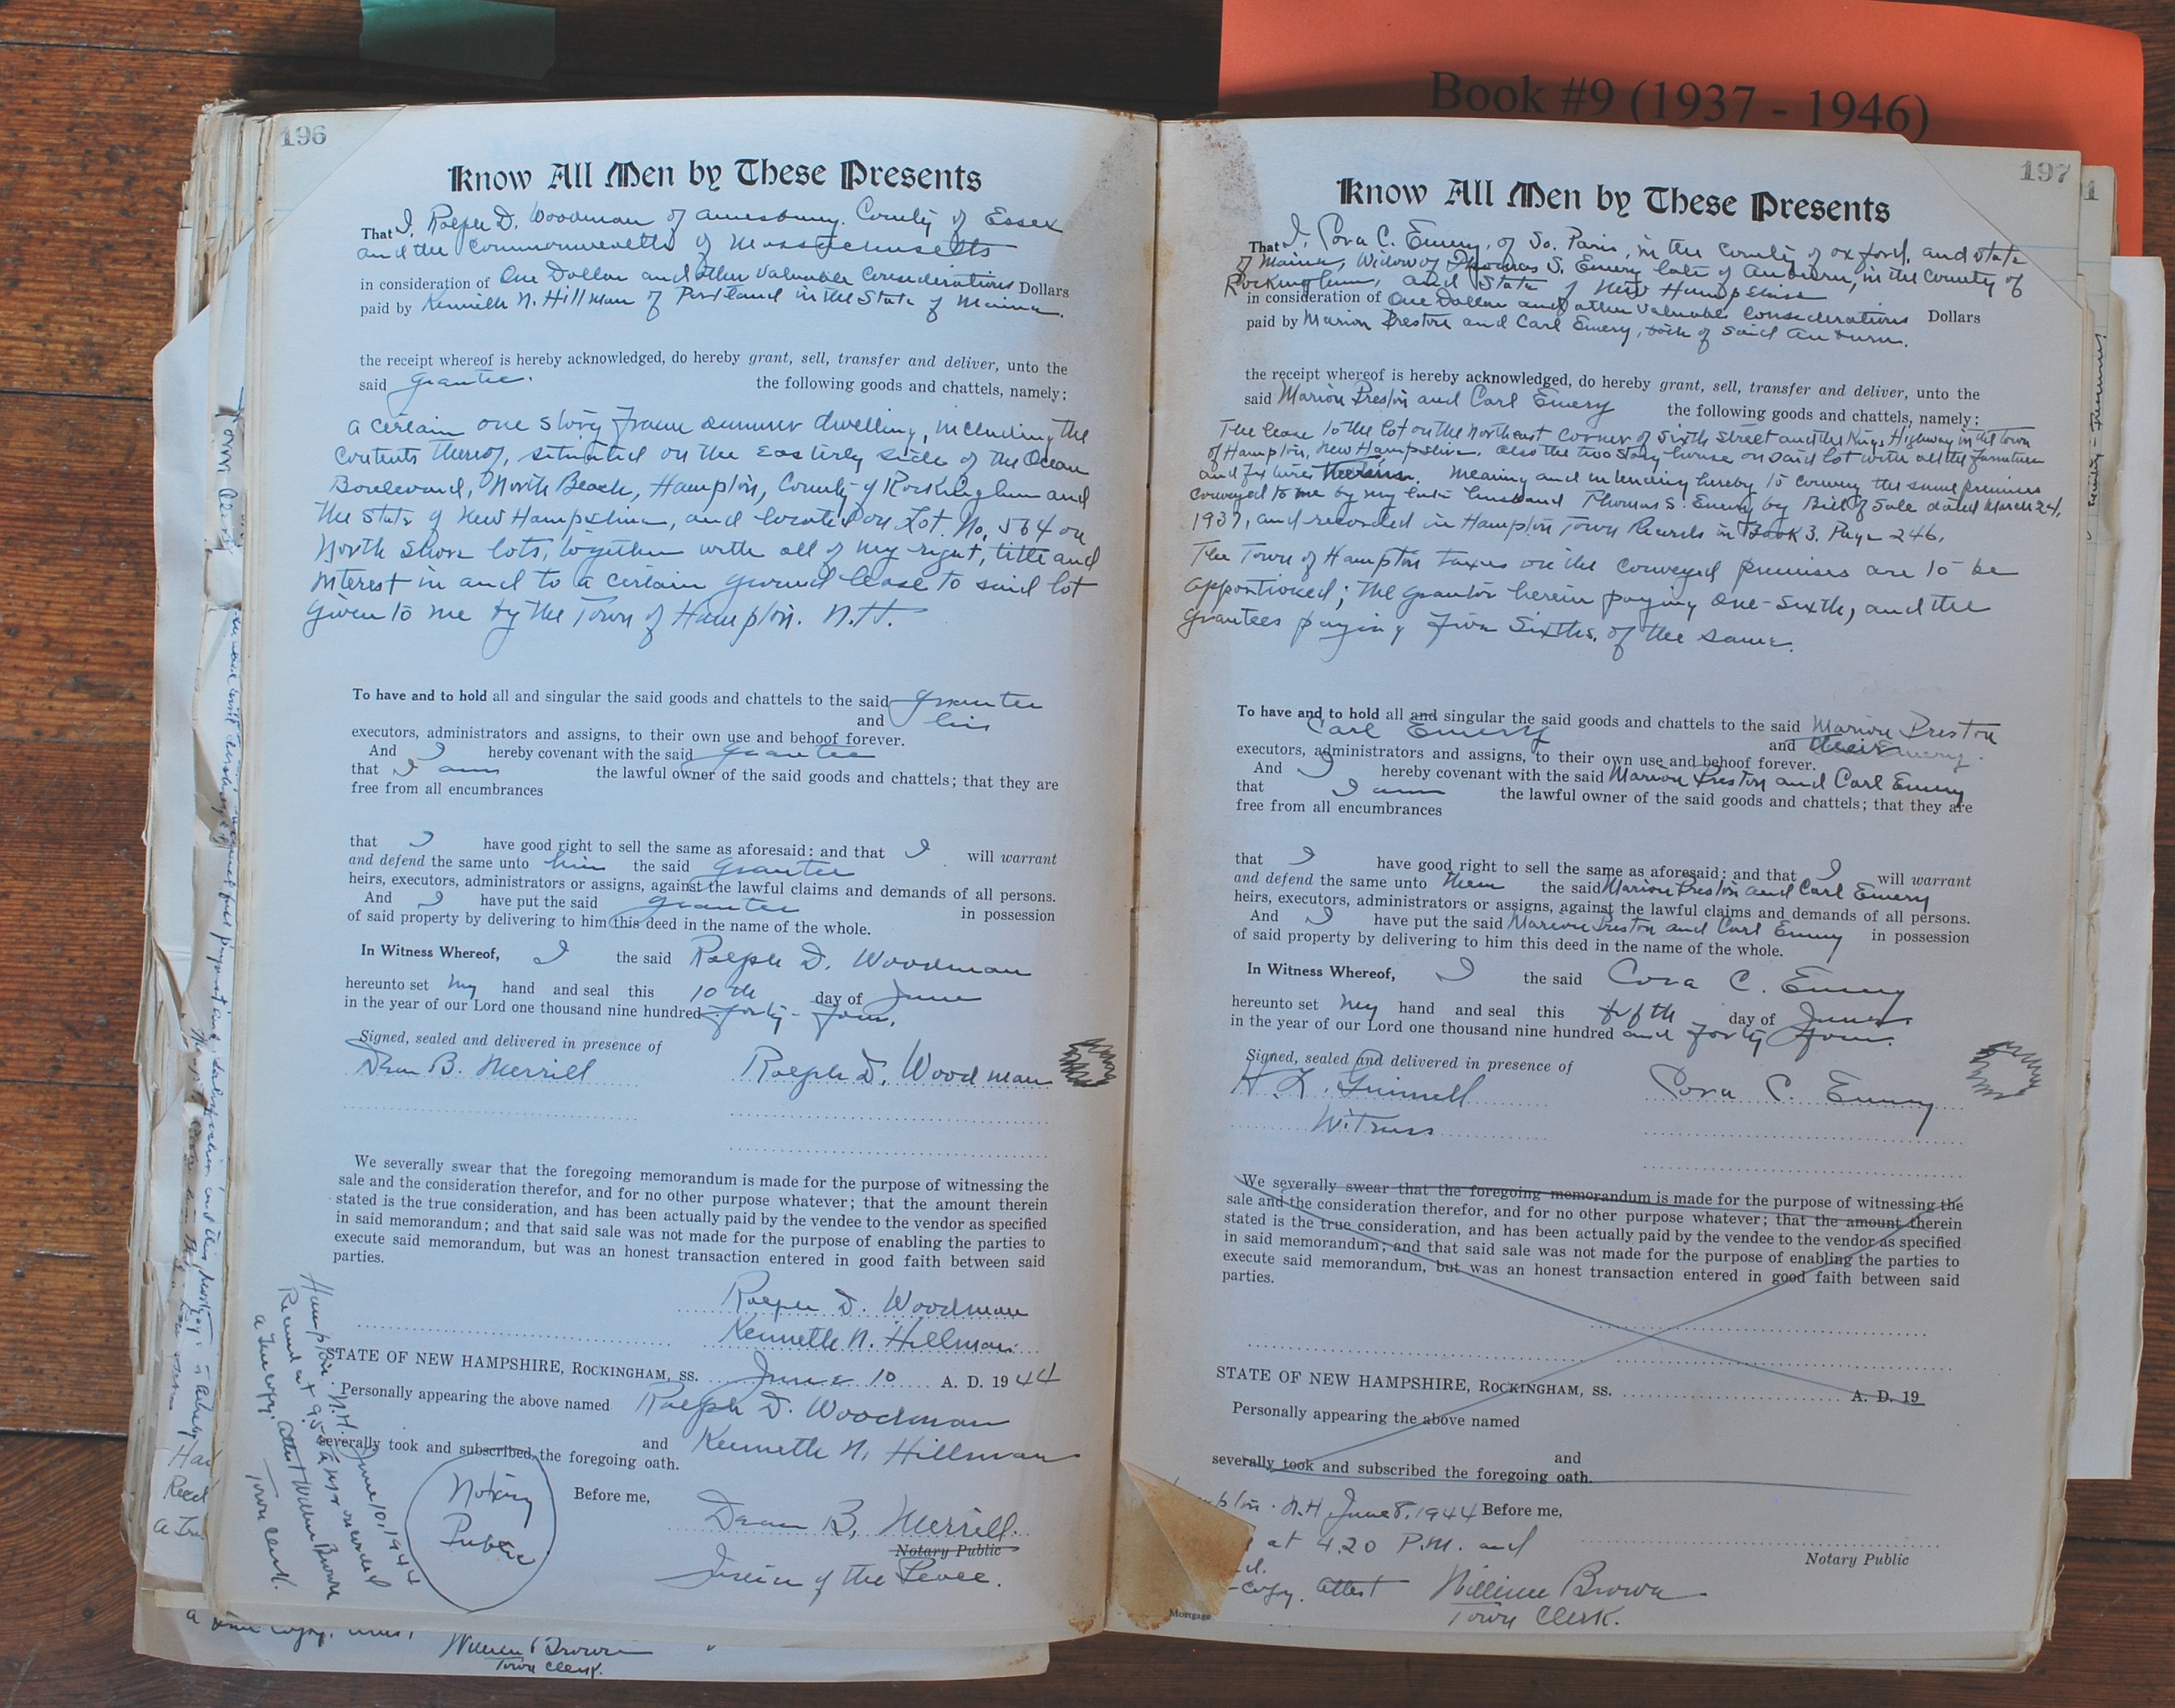 Book #9 (1937 - 1946)
196
Know All Men by These Presents
That I, Ralph D. Woodman of Amesbury, County of Essex
and the Commonwealth of Massachusetts
in consideration of One Dollar and other Valuable Considerations Dollars
paid by Kenneth N. Hillman of Portland in the State of Maine.
the receipt whereof is hereby acknowledged, do hereby grant, sell, transfer and deliver, unto the
said Grantee. the following goods and chattels, namely;
a certain one story frame summer dwelling, including the
contents thereof, situated on the Easterly side of the Ocean
Boulevard, North Beach, Hampton, County of Rockingham and
the State of New Hampshire, and located on Lot. No, 564 on
North Shore lots, together with all of my right, title and
interest in and to a certain ground lease to said lot
given to me by the Town of Hampton. N.H.
To have and to hold all and singular the said goods and chattels to the said grantee
and his
executors, administrators and assigns, to their own use and behoof forever.
And I hereby covenant with the said grantee
that I am the lawful owner of the said goods and chattels; that they are
free from all encumbrances
that I have good right to sell the same as aforesaid: and that I will warrant
and defend the same unto him the said Grantee
heirs, executors, administrators or assigns, against the lawful claims and demands of all persons.
And I have put the said grantee in possession
of said property by delivering to him this deed in the name of the whole.
In Witness Whereof, I the said Ralph D. Woodman
hereunto set my hand and seal this 10th day of June
in the year of our Lord one thousand nine hundred forty-four.
Signed, sealed and delivered in presence of
Dean B. Merrill Ralph D. Woodman
We severally swear that the foregoing memorandum is made for the purpose of witnessing the
sale and the consideration therefor, and for no other purpose whatever; that the amount therein
stated is the true consideration, and has been actually paid by the vendee to the vendor as specified
in said memorandum; and that said sale was not made for the purpose of enabling the parties to
execute said memorandum, but was an honest transaction entered in good faith between said
parties.
Ralph D. Woodman
Kenneth N. Hillman
STATE OF NEW HAMPSHIRE, ROCKINGHAM, SS. June 10 A. D. 1944
Personally appearing the above named Ralph D. Woodman
and Kenneth N. Hillman
severally took and subscribed the foregoing oath.
Notary
Public
Before me,
Dean B. Merrill
Notary Public
Justice of the Peace.
Hampton. N.H. June 10, 1944
Received at 9.55 A.M. and recorded
a True copy. Attest William Brown
Town Clerk.
a True copy. Attest
William Brown
Town Clerk.
197
Know All Men by These Presents
That I, Cora C. Emery, of So. Paris, in the County of Oxford, and State
of Maine, Widow of Thomas S. Emery late of Auburn, in the County of
Rockingham, and State of New Hampshire
in consideration of One Dollar and other Valuable Considerations Dollars
paid by Marion Preston and Carl Emery, both of said Auburn.
the receipt whereof is hereby acknowledged, do hereby grant, sell, transfer and deliver, unto the
said Marion Preston and Carl Emery the following goods and chattels, namely;
The lease to the lot on the Northeast Corner of Sixth Street and the Kings Highway in the Town
of Hampton, New Hampshire. Also the two story house on said lot with all the furniture
and fixtures therein. Meaning and intending hereby to convey the same premises
conveyed to me by my late husband Thomas S. Emery by Bill of Sale dated March 24,
1937, and recorded in Hampton Town Records in Book 3. Page 246.
The Town of Hampton taxes on the conveyed premises are to be
apportioned; the grantor herein paying one-sixth, and the
grantees paying five sixths, of the same.
To have and to hold all and singular the said goods and chattels to the said Marion Preston
Carl Emery and their
executors, administrators and assigns, to their own use and behoof forever.
And I hereby covenant with the said Marion Preston and Carl Emery
that I am the lawful owner of the said goods and chattels; that they are
free from all encumbrances
that I have good right to sell the same as aforesaid: and that I will warrant
and defend the same unto them the said Marion Preston and Carl Emery
heirs, executors, administrators or assigns, against the lawful claims and demands of all persons.
And I have put the said Marion Preston and Carl Emery in possession
of said property by delivering to him this deed in the name of the whole.
In Witness Whereof, I the said Cora C. Emery
hereunto set my hand and seal this fifth day of June
in the year of our Lord one thousand nine hundred and forty four.
Signed, sealed and delivered in presence of
Cora C. Emery
Witness
We severally swear that the foregoing memorandum is made for the purpose of witnessing the
sale and the consideration therefor, and for no other purpose whatever; that the amount therein
stated is the true consideration, and has been actually paid by the vendee to the vendor as specified
in said memorandum; and that said sale was not made for the purpose of enabling the parties to
execute said memorandum, but was an honest transaction entered in good faith between said
parties.
STATE OF NEW HAMPSHIRE, ROCKINGHAM, SS. A. D. 19
Personally appearing the above named
and
severally took and subscribed the foregoing oath.
N.H June 8, 1944 Before me,
at 4.20 P.M. and
Notary Public
copy. Attest William Brown
Town Clerk.
Mortgage